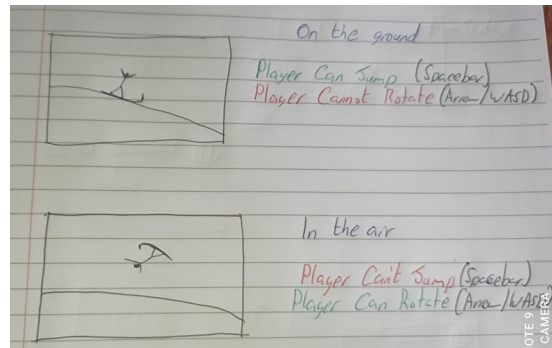 On the ground
Player Can Jump (Spacebar)
Player Cannot Rotate (Arrow/WASD)
In the air
Player Can't Jump (Spacebar)
Player Can Rotate (Arrow/WASD)
OTE 9
CAMERA